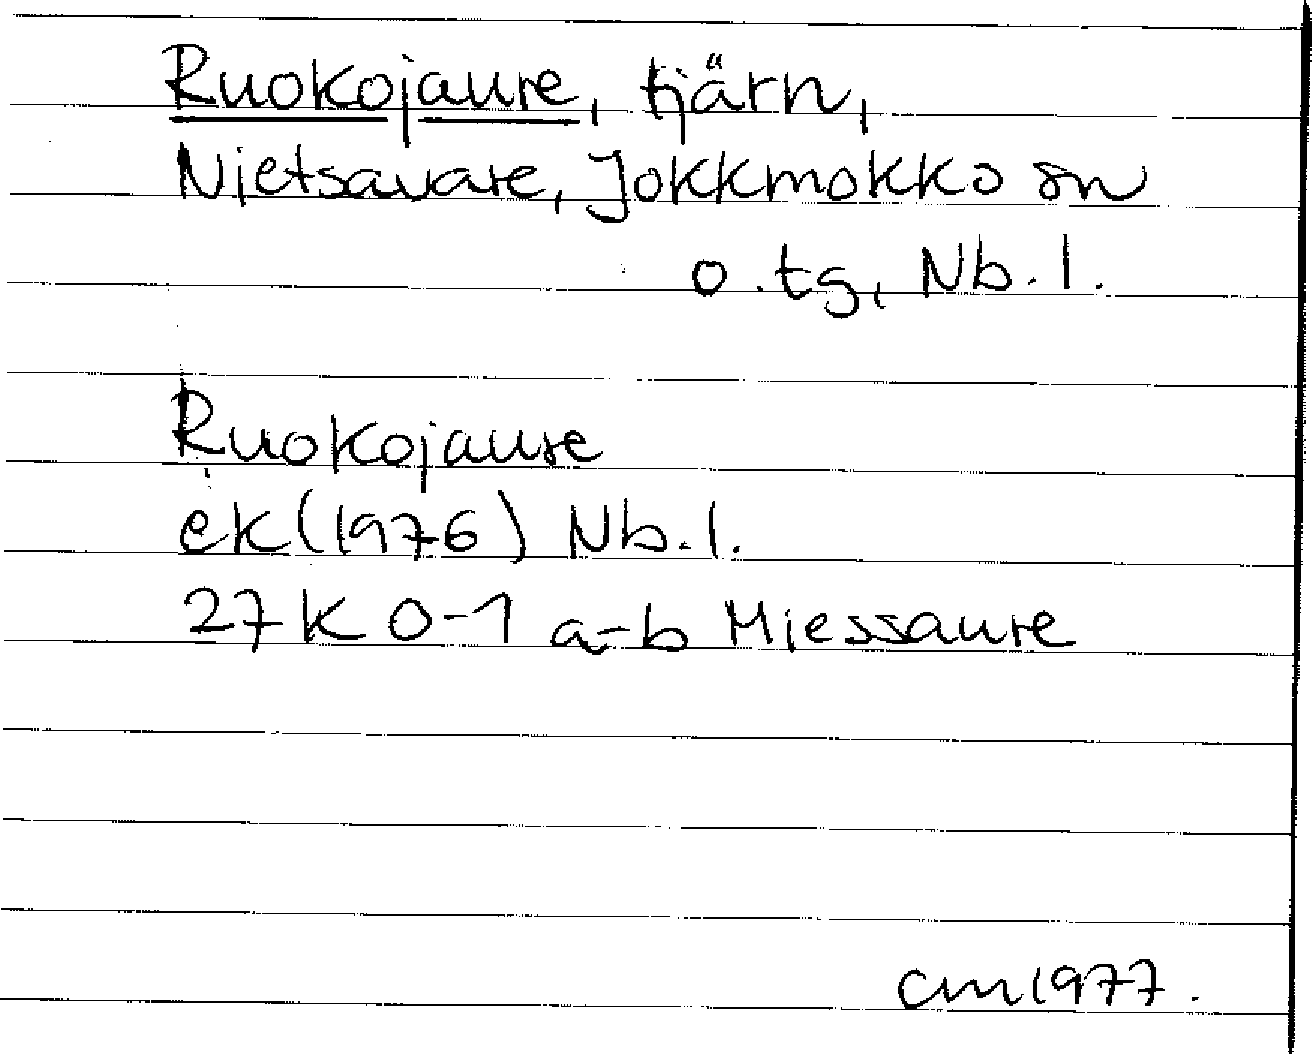 Ruokojaure, tjärn,
Njetsavare, Jokkmokks sn
o. tg, Nb. l.
Ruokojaure
ek (1976) Nb. l.
27 K 0-1 a-b Miessaure
cm 1977.